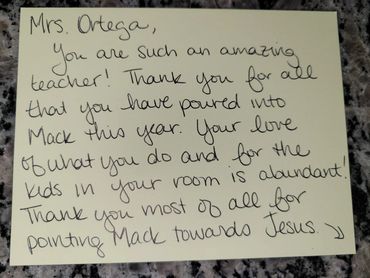 Mrs. Ortega,
You are such an amazing
teacher! Thank you for all
that you have poured into
Mack this year. Your love
of what you do and for the
kids in your room is abundant!
Thank you most of all for
pointing Mack towards Jesus.